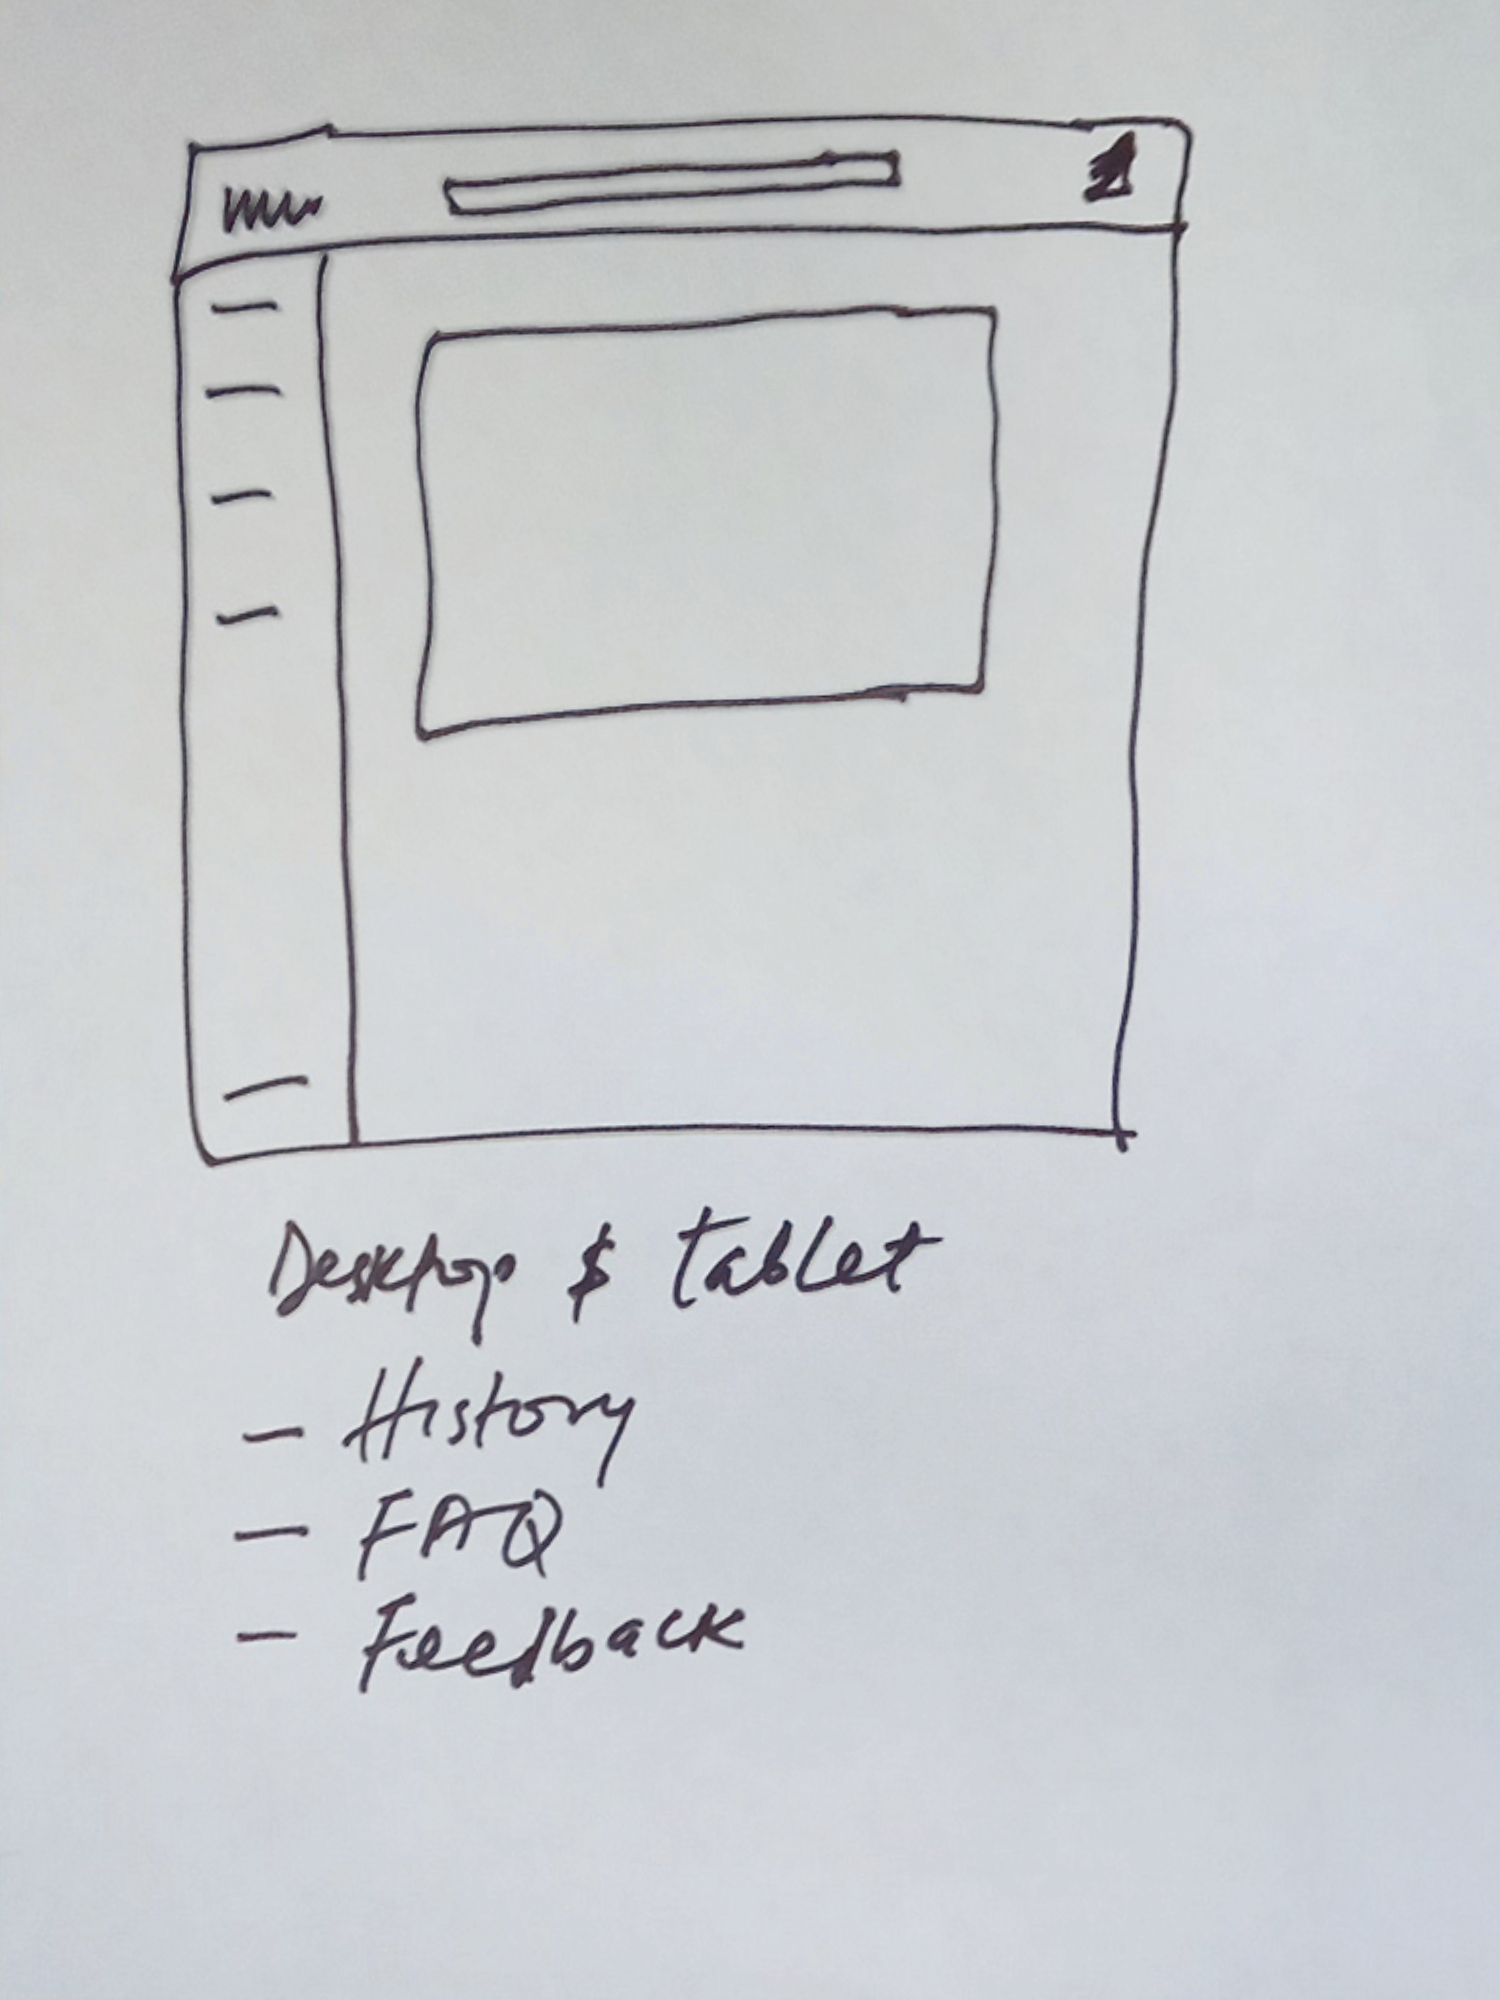 Desktop & tablet
- History
- FAQ
- Feedback